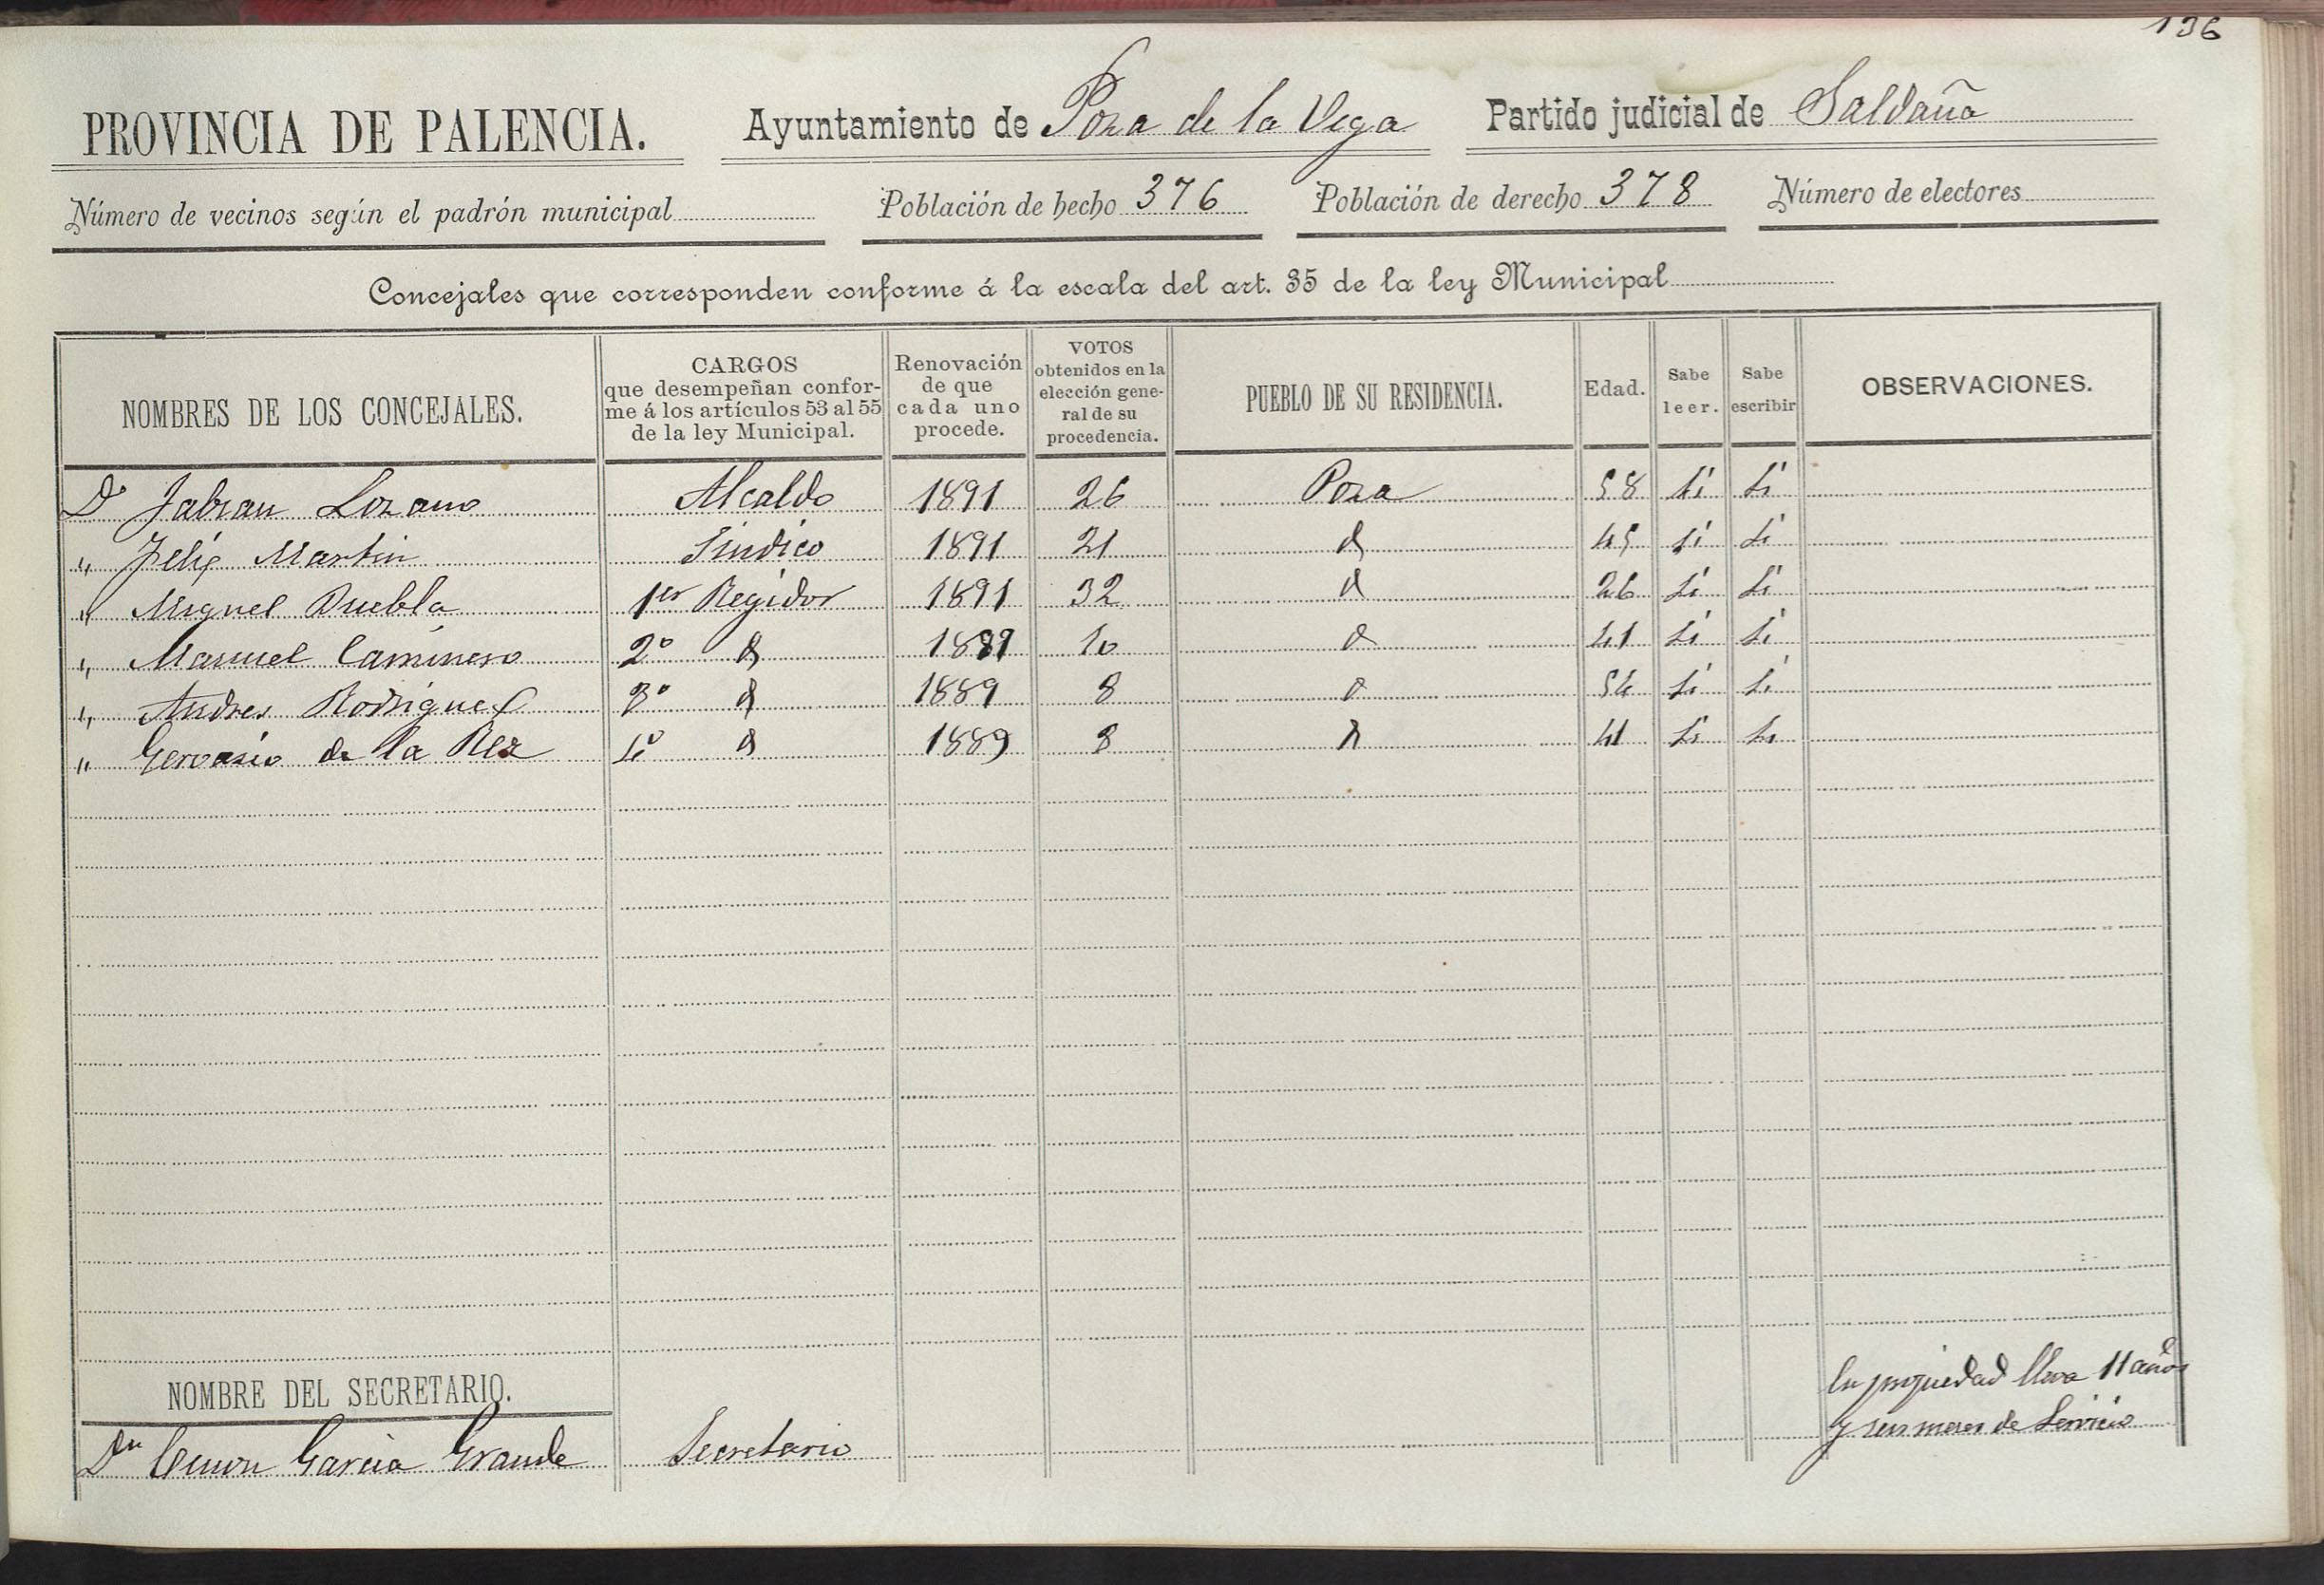 136
PROVINCIA DE PALENCIA. Ayuntamiento de Poza de la Vega Partido judicial de Saldaña
Número de vecinos según el padrón municipal Población de hecho 376 Población de derecho 378 Número de electores
Concejales que corresponden conforme á la escala del art. 35 de la ley Municipal
NOMBRES DE LOS CONCEJALES.
CARGOS
que desempeñan confor-
me á los artículos 53 al 55
de la ley Municipal.
Renovación
de que
cada uno
procede.
VOTOS
obtenidos en la
elección gene-
ral de su
procedencia.
PUEBLO DE SU RESIDENCIA.
Edad.
Sabe
leer.
Sabe
escribir
OBSERVACIONES.
Dn Fabian Lozano Alcalde 1891 26 Poza 58 Si Si
" Felix Martin Sindico 1891 21 d 45 si si
" Miguel Puebla 1er Regidor 1891 32 d 26 Si Si
" Manuel Caminero 2º d 1889 10 d 41 Si Si
" Andres Rodriguez 3º d 1889 8 d 54 Si Si
" Gervasio de la Rez 4º d 1889 8 d 41 Si Si
NOMBRE DEL SECRETARIO.
En propiedad lleva 11 años
y seis meses de Servicio
Dn García Grande Secretario